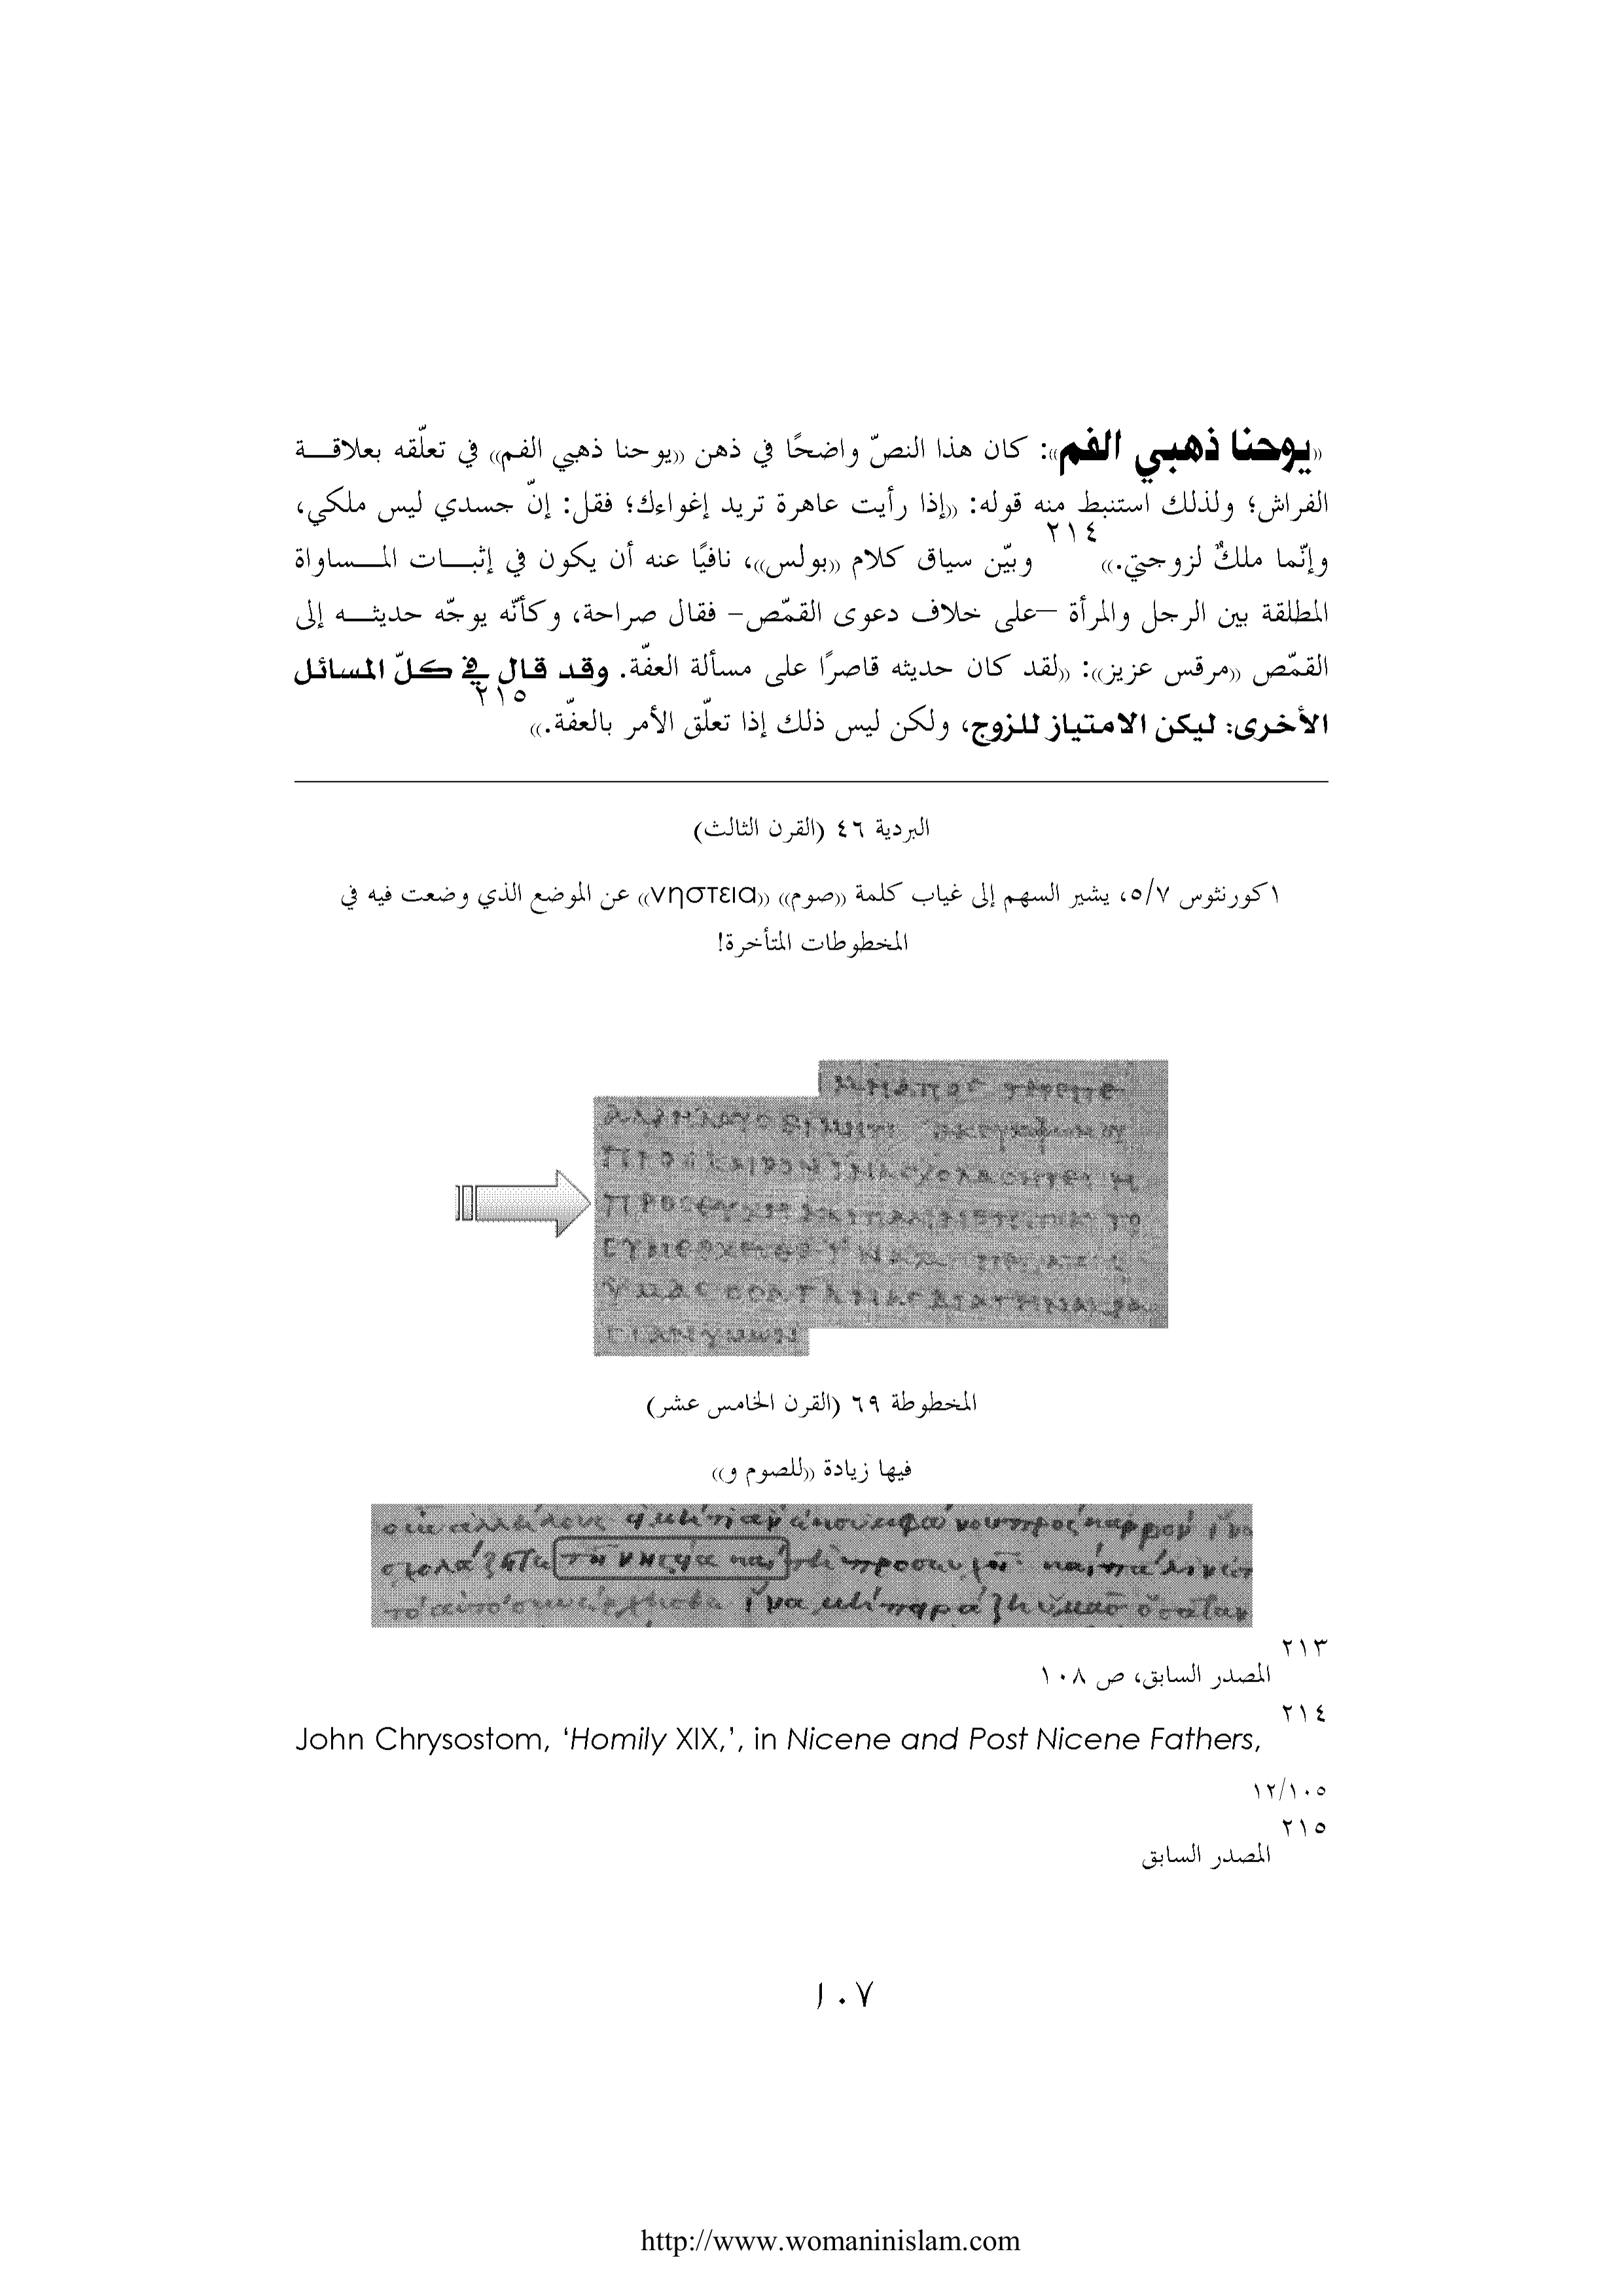 «يوحنا ذهبي الفم»: كان هذا النصّ واضحًا في ذهن «يوحنا ذهبي الفم» في تعلّقه بعلاقة
الفراش؛ ولذلك استنبط منه قوله: «إذا رأيت عاهرة تريد إغواءك؛ فقل: إنّ جسدي ليس ملكي،
وإنّما ملكٌ لزوجتي.»٢١٤ وبيّن سياق كلام «بولس»، نافيًا عنه أن يكون في إثبات المساواة
المطلقة بين الرجل والمرأة –على خلاف دعوى القمّص– فقال صراحة، وكأنّه يوجّه حديثه إلى
القمّص «مرقس عزيز»: «لقد كان حديثه قاصرًا على مسألة العفّة. وقد قال في كلّ المسائل
الأخرى: ليكن الامتياز للزوج، ولكن ليس ذلك إذا تعلّق الأمر بالعفّة.»٢١٥
البردية ٤٦ (القرن الثالث)
١كورنثوس ٥/٧، يشير السهم إلى غياب كلمة «صوم» «νηστεια» عن الموضع الذي وضعت فيه في
المخطوطات المتأخرة!
المخطوطة ٦٩ (القرن الخامس عشر)
فيها زيادة «للصوم و»
٢١٣
المصدر السابق، ص ١٠٨
٢١٤
John Chrysostom, ‘Homily XIX,’, in Nicene and Post Nicene Fathers,
١٢/١٠٥
٢١٥
المصدر السابق
١٠٧
http://www.womaninislam.com